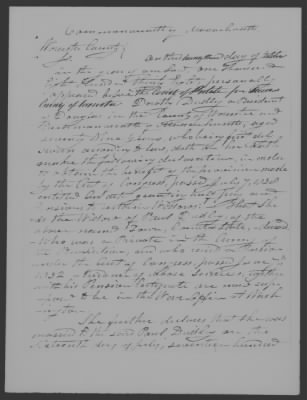 Commonwealth of Massachusetts
Worcester County
On this twenty third day of October
in the year of our Lord one thousand
Eight hundred & thirty Eight, personally
appeared before the Court of Probate for
County of Worcester Dorothy Dudley a resident
of Douglas in the County of Worcester and
Commonwealth of Massachusetts, aged
seventy Nine years, who being first duly
sworn according to law, doth on her oath
make the following declaration, in order
to obtain the benefit of the provision made
by the Act of Congress, passed July 7, 1838
entitled an act granting half pay and
pensions to certain Widows: That She
is the Widow of Paul Dudley of the
above named Town, County & State,
who was a Private in the Army
of the Revolution, and who
under the Act of Congress passed June 7
1832, evidence of whose service, together
with his Pension Certificate are
to be in the War Office at Wash-
ington
She further declares that she was
married to the said Paul Dudley on the
sixteenth day of July, seventeen hundred